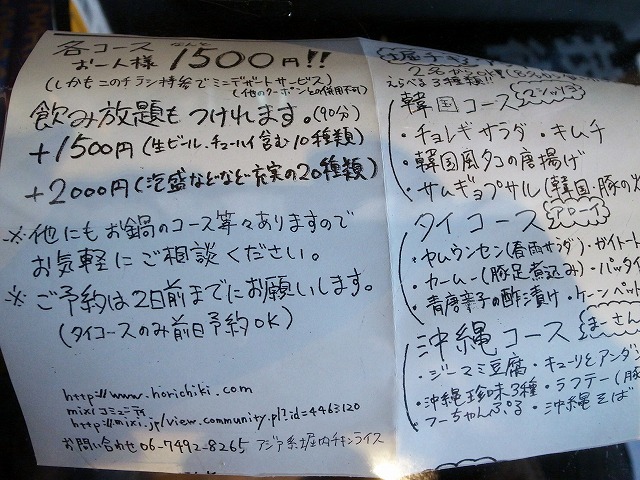 各コース
お一人様 なんと 1500円!!
(しかもこのチラシ持参でミニデザートサービス)
(他のクーポンとの併用不可)
飲み放題もつけれます。(90分)
+1500円(生ビール、チューハイ含む10種類)
+2000円(泡盛などなど充実の20種類)
※他にもお鍋のコース等々ありますので
お気軽にご相談ください。
※ご予約は2日前までにお願いします。
(タイコースのみ前日予約OK)
http://www.horichiki.com
mixiコミュニティ
http://mixi.jp/view.community.pl?id=4463120
お問い合わせ 06-7492-8265 アジア系堀内チキンライス
えらべる3種類!!
韓国コース マシッソヨ
・チョレギサラダ ・キムチ
・韓国風タコの唐揚げ
・サムギョプサル(韓国・豚の
タイコース アローイ
・ヤムウンセン(春雨サラダ)・ガイトート
・カームー(豚足煮込み)・パッタイ
・青唐辛子の酢漬け・ケーンペット
沖縄コース まーさん
・ジーマミ豆腐 ・キューリとアンダ
・沖縄珍味3種 ・ラフテー(豚
・フーちゃんぷる ・沖縄そば